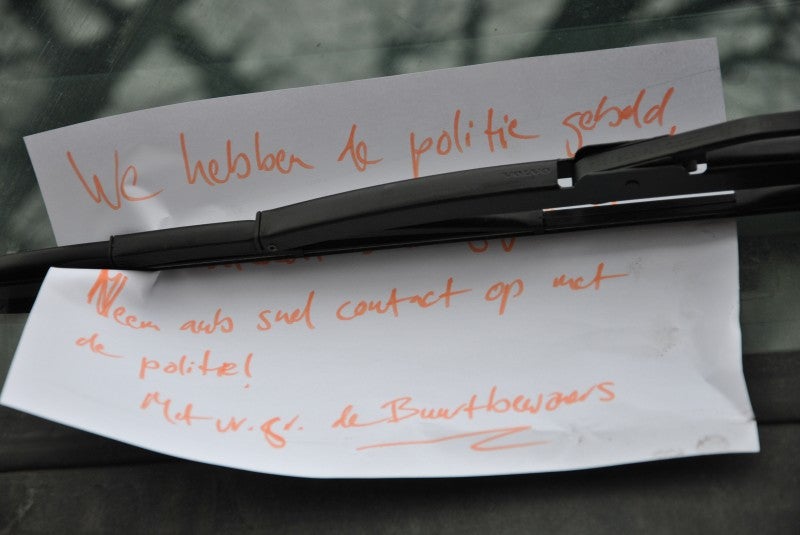 We hebben de politie gebeld,
VOLVO
Neem aub snel contact op met
de politie!
Met vr. gr. de Buurtbewoners